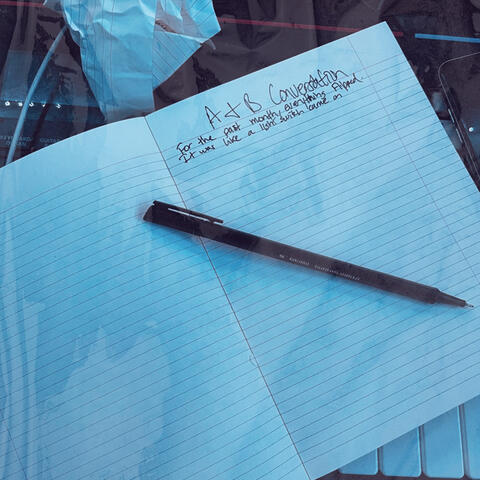 A & B Conversation
For the past month, everything flipped.
It was like a light switch came on